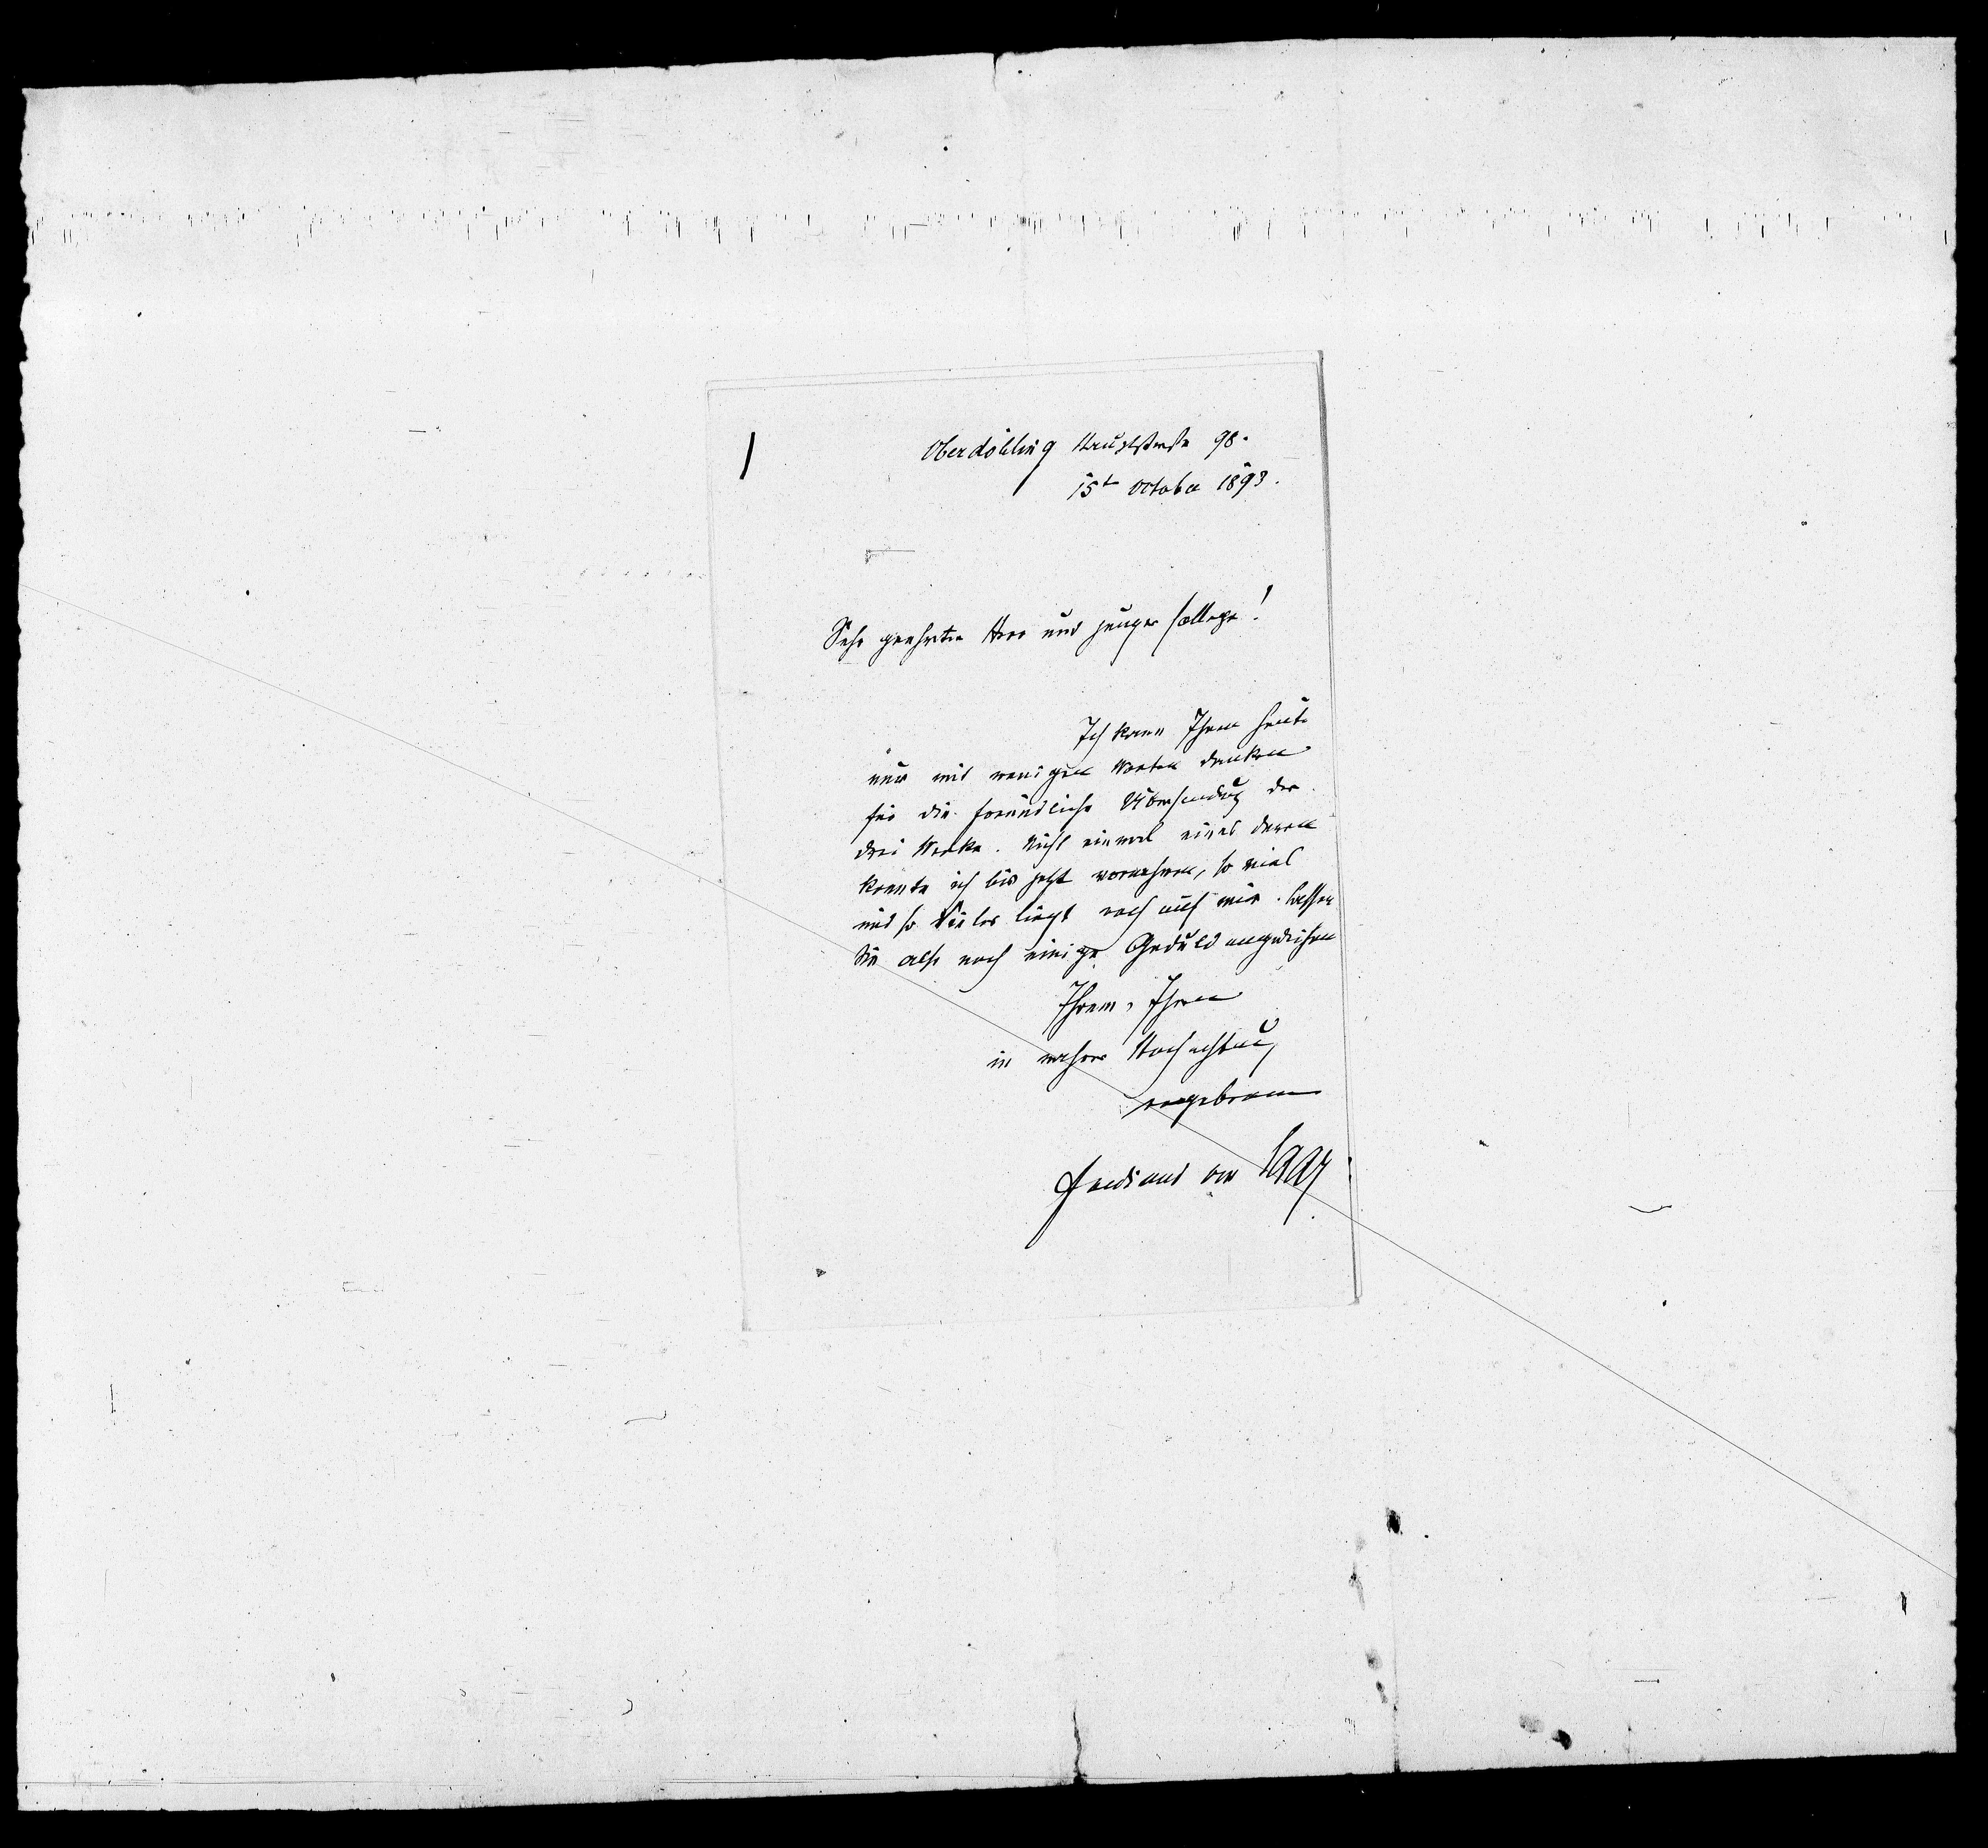 Oberdöbling Hauptstrasse 98.
15t October 1893.
Sehr geehrter Herr und junger College!
Ich kann Ihnen heute
nur mit wenigen Worten danken
für die freundliche Übersendung der
drei Werke. Nicht einmal eines davon
konnte ich bis jetzt vornehmen, so viel
und so Vieles liegt noch auf mir. Lassen
Sie also noch einige Geduld angedeihen
Ihrem, Ihnen
in wahrer Hochachtung
ergebenen
Ferdinand von Saar